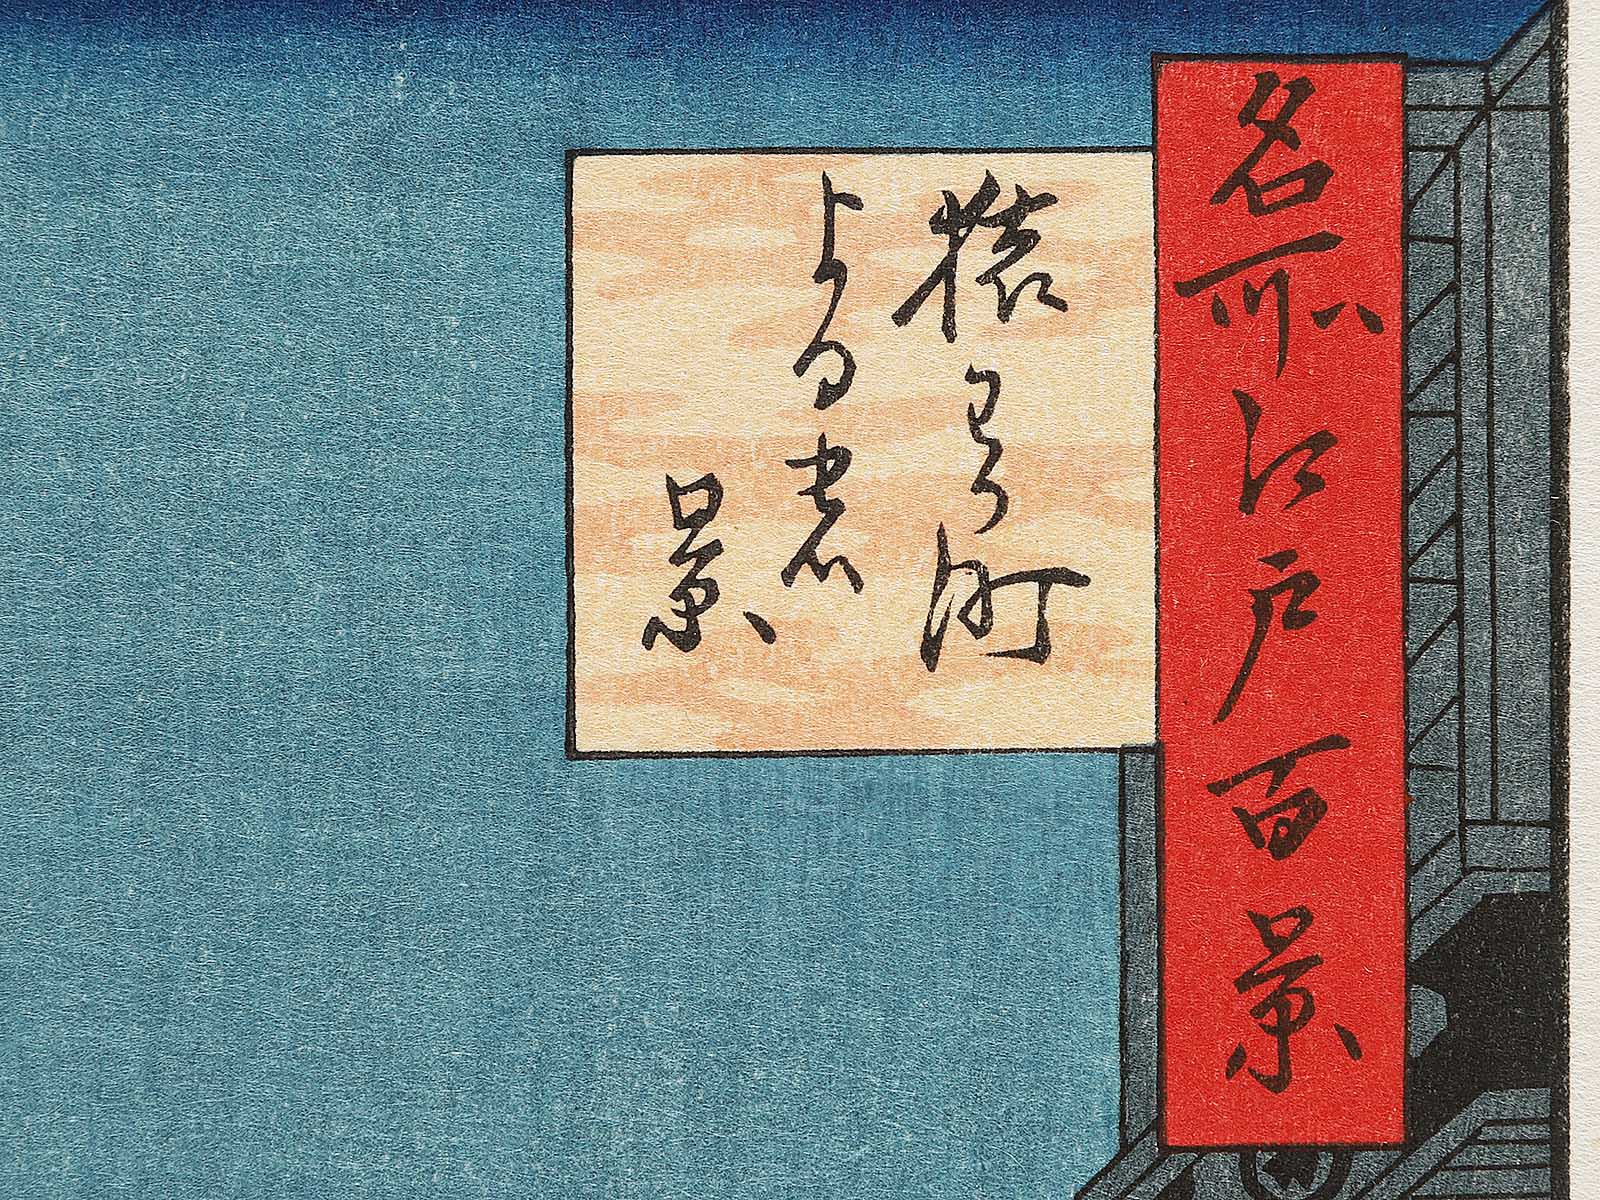 名所江戸百景
猿わか町
よるの
景